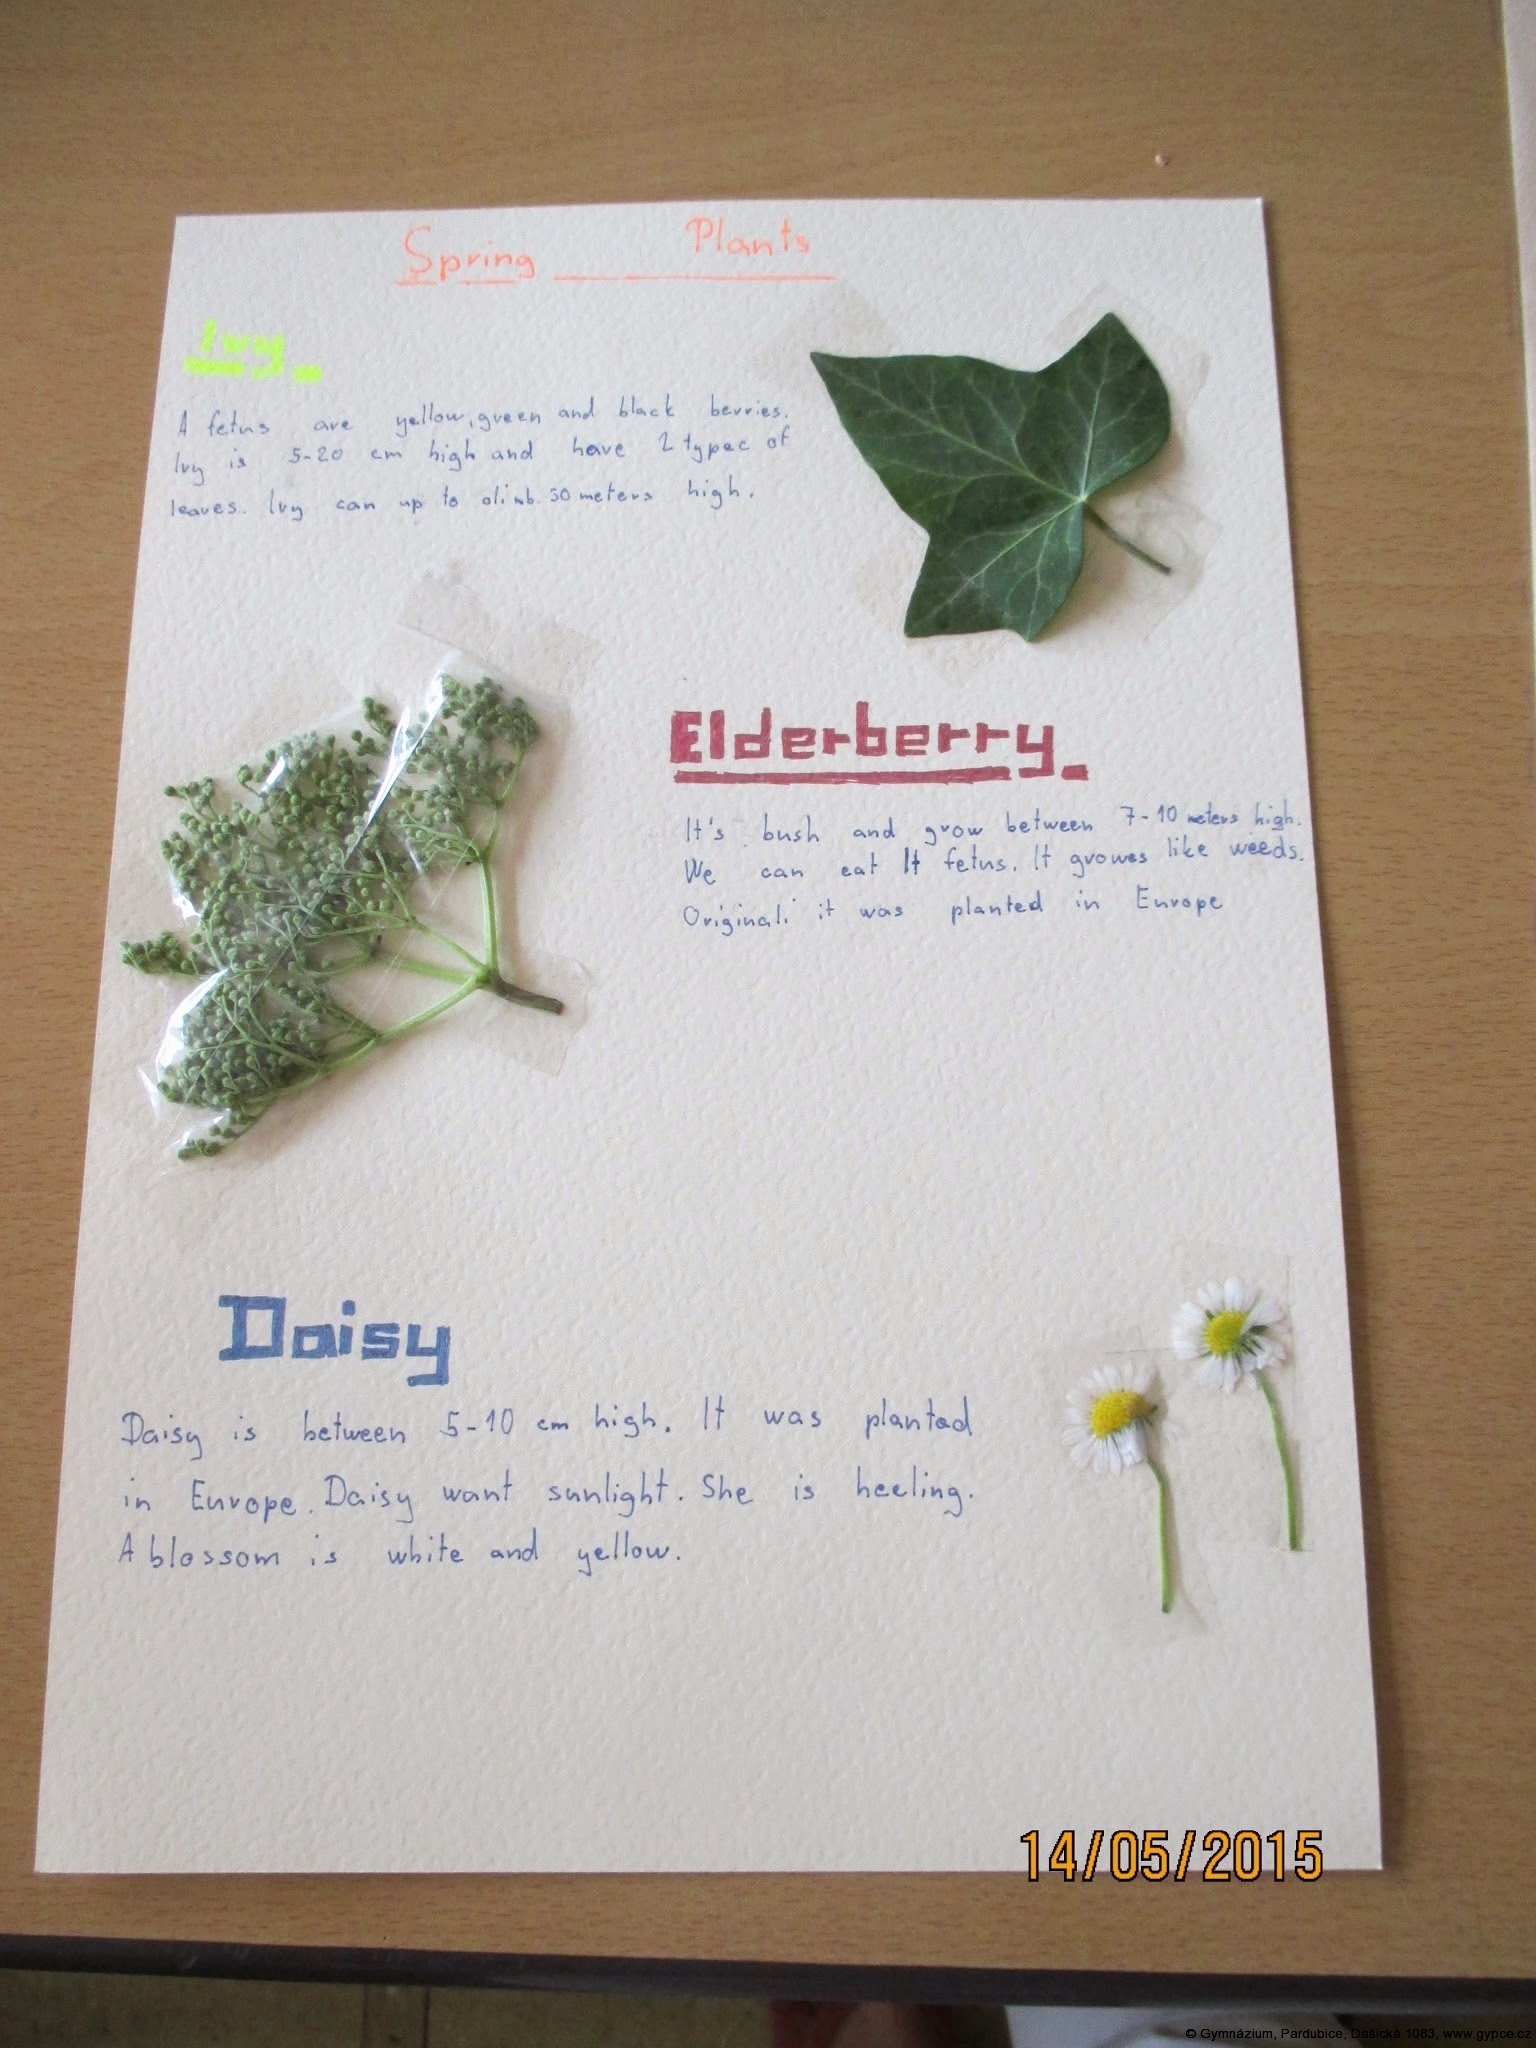 Spring Plants
Ivy
A fetus are yellow, green and black berries.
Ivy is 5-20 cm high and have 2 typec of
leaves. Ivy can up to olimb 50 meters high.
Elderberry
It's bush and grow between 7-10 meters high.
We can eat It fetus. It growes like weeds.
Originali it was planted in Europe
Daisy
Daisy is between 5-10 cm high. It was planted
in Europe. Daisy want sunlight. She is heeling.
A blossom is white and yellow.
14/05/2015
© Gymnázium, Pardubice, Dašická 1083, www.gypce.cz